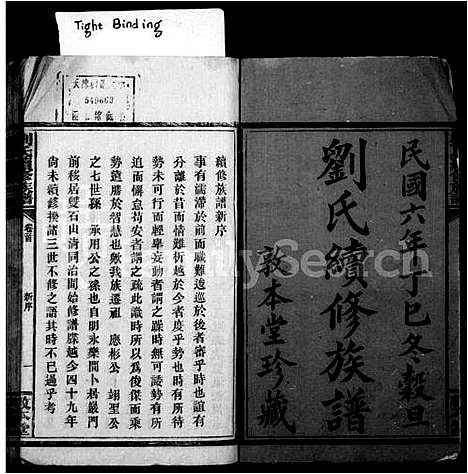 Tight Binding
民國六年丁巳冬穀旦
劉氏續修族譜
敦本堂珍藏
續修族譜新序
事有濡滯於前而職難逡巡於後者審乎時也誼有
分離於昔而情難析越於今者度乎勢也時有所待
時未可行而輕舉妄動者謂之躁時無可諉勢有所
迫而懈怠苟安者謂之疏此識時所以爲俊傑而乘
勢遠勝於智慧也歟我族遷祖 應彬公 翊聖公
之七世孫 承用公之孫也自明永樂間卜居嚴門
前移居雙石山清同治間始修譜牒越今四十九年
尚未續修揆諸三世不修之語其時不已過乎考
卷首
新序
一
549663
FamilySearch